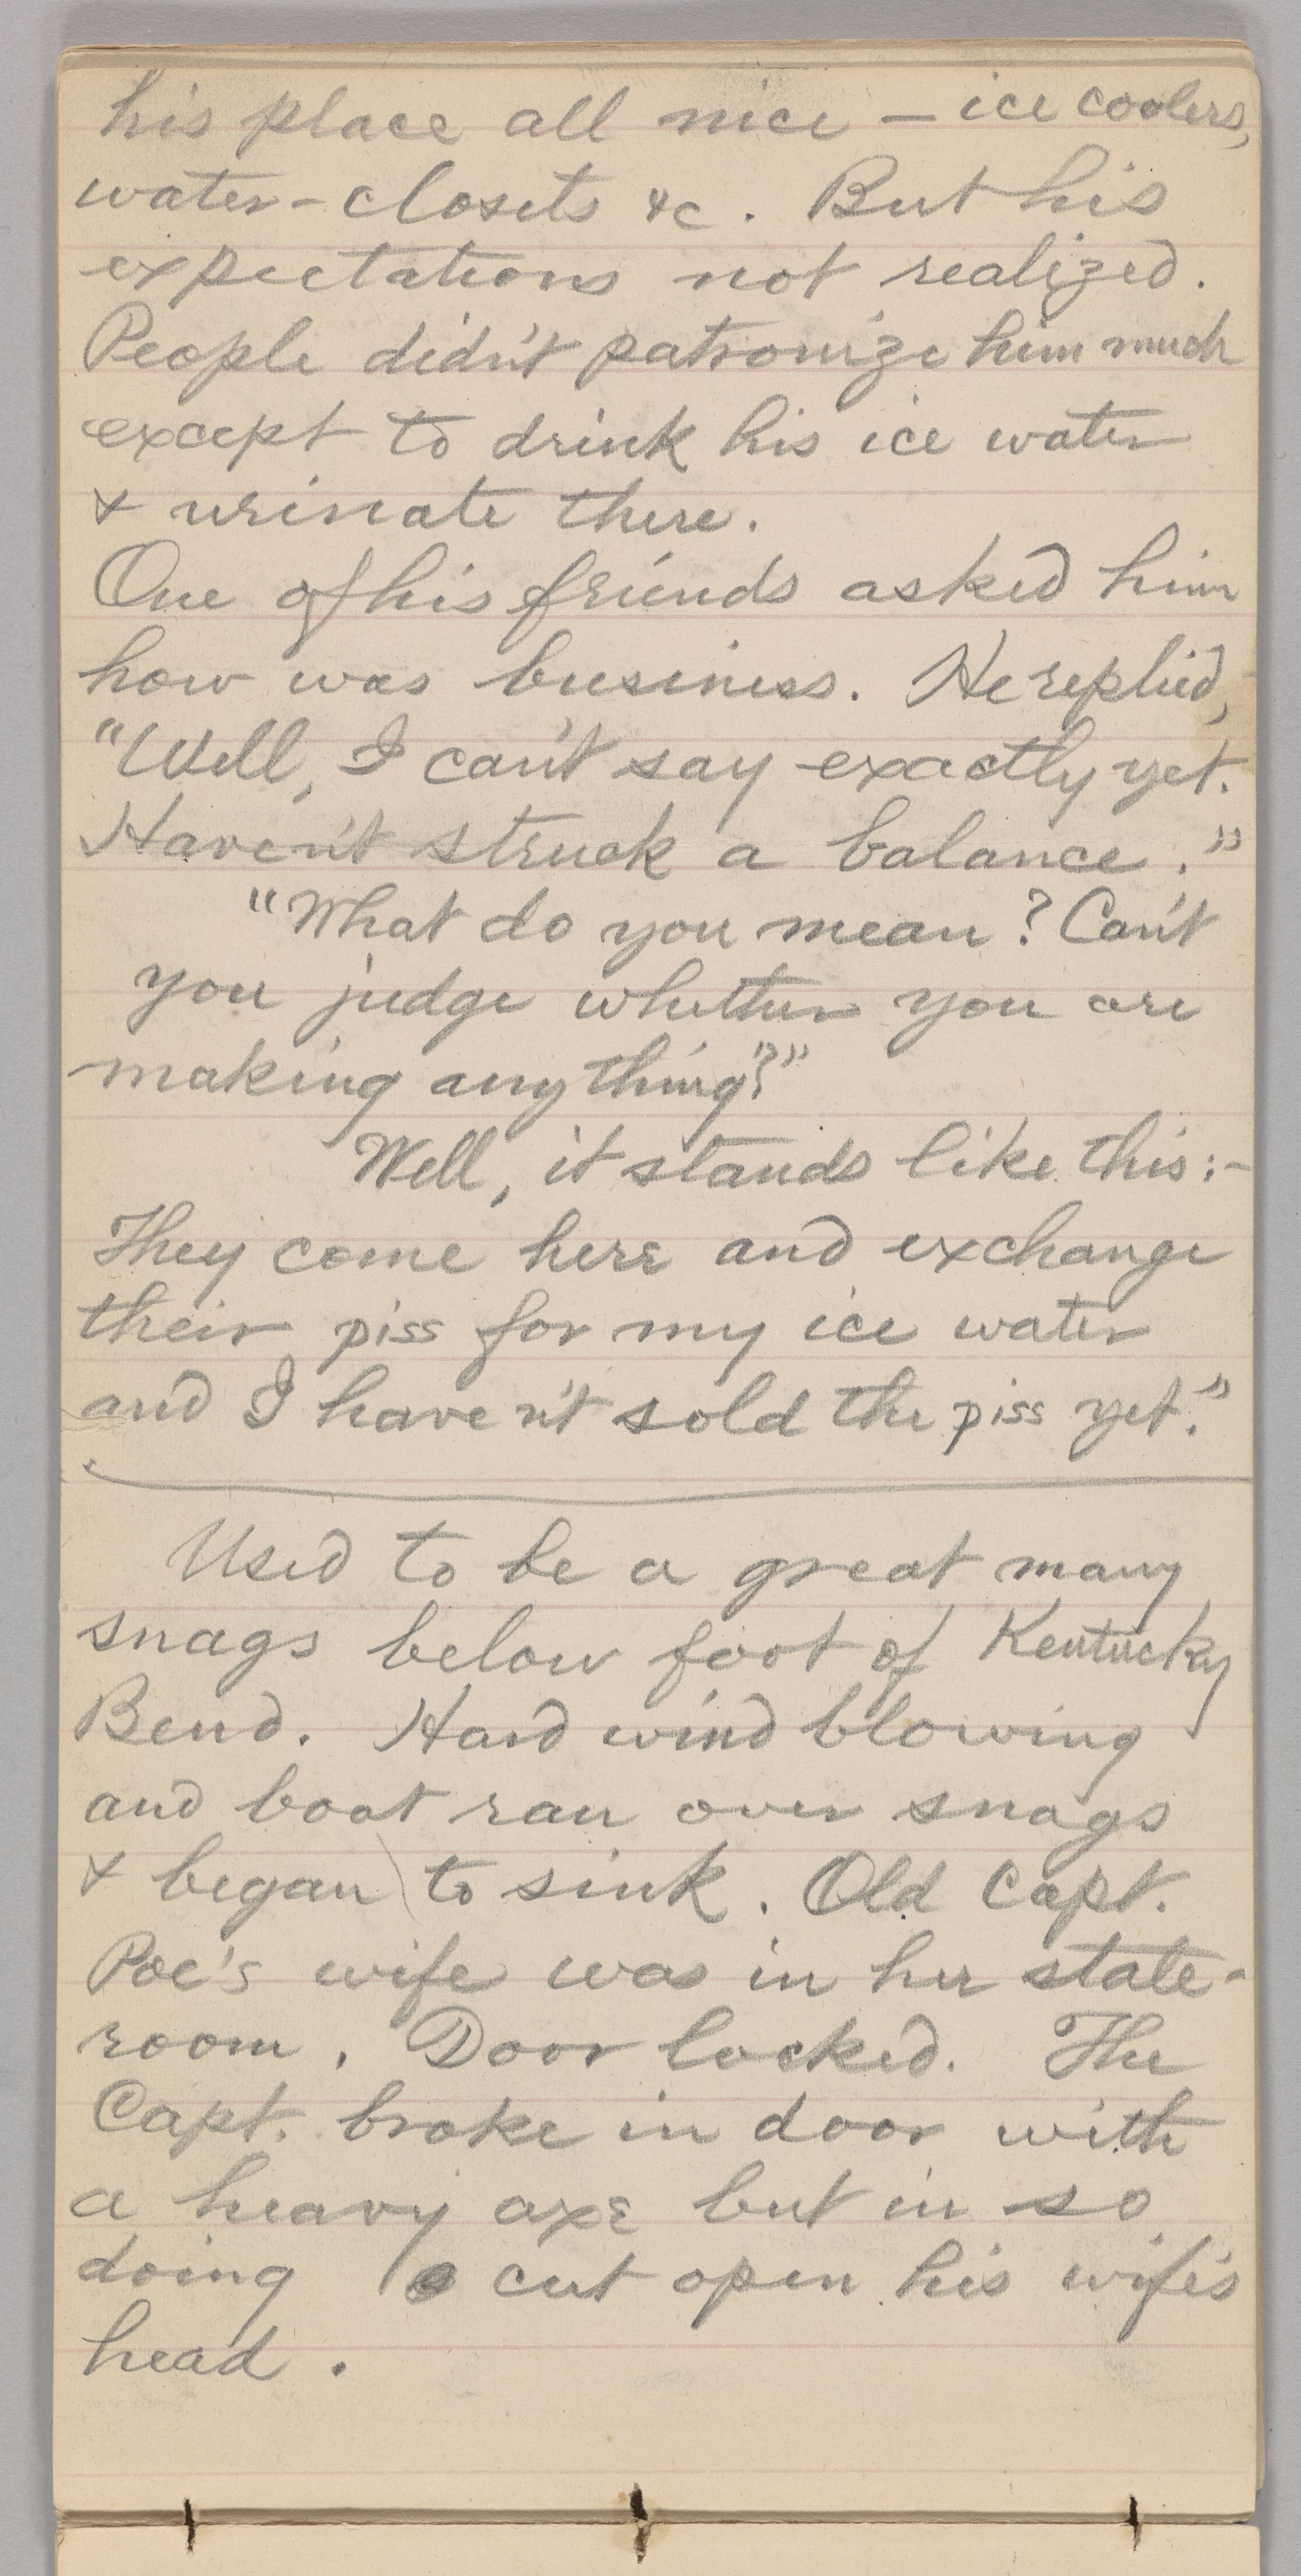 his place all nice — ice coolers,
water-closets &c. But his
expectations not realized.
People didn't patronize him much
except to drink his ice water
& urinate there.
One of his friends asked him
how was business. He replied,
"Well, I can't say exactly yet.
Haven't struck a balance."
"What do you mean? Can't
you judge whether you are
making anything?"
Well, it stands like this:-
They come here and exchange
their piss for my ice water
and I haven't sold the piss yet."
Used to be a great many
snags below foot of Kentucky
Bend. Hard wind blowing
and boat ran over snags
& began to sink. Old Capt.
Poe's wife was in her state-
room. Door locked. The
Capt. broke in door with
a heavy axe but in so
doing cut open his wife's
head.